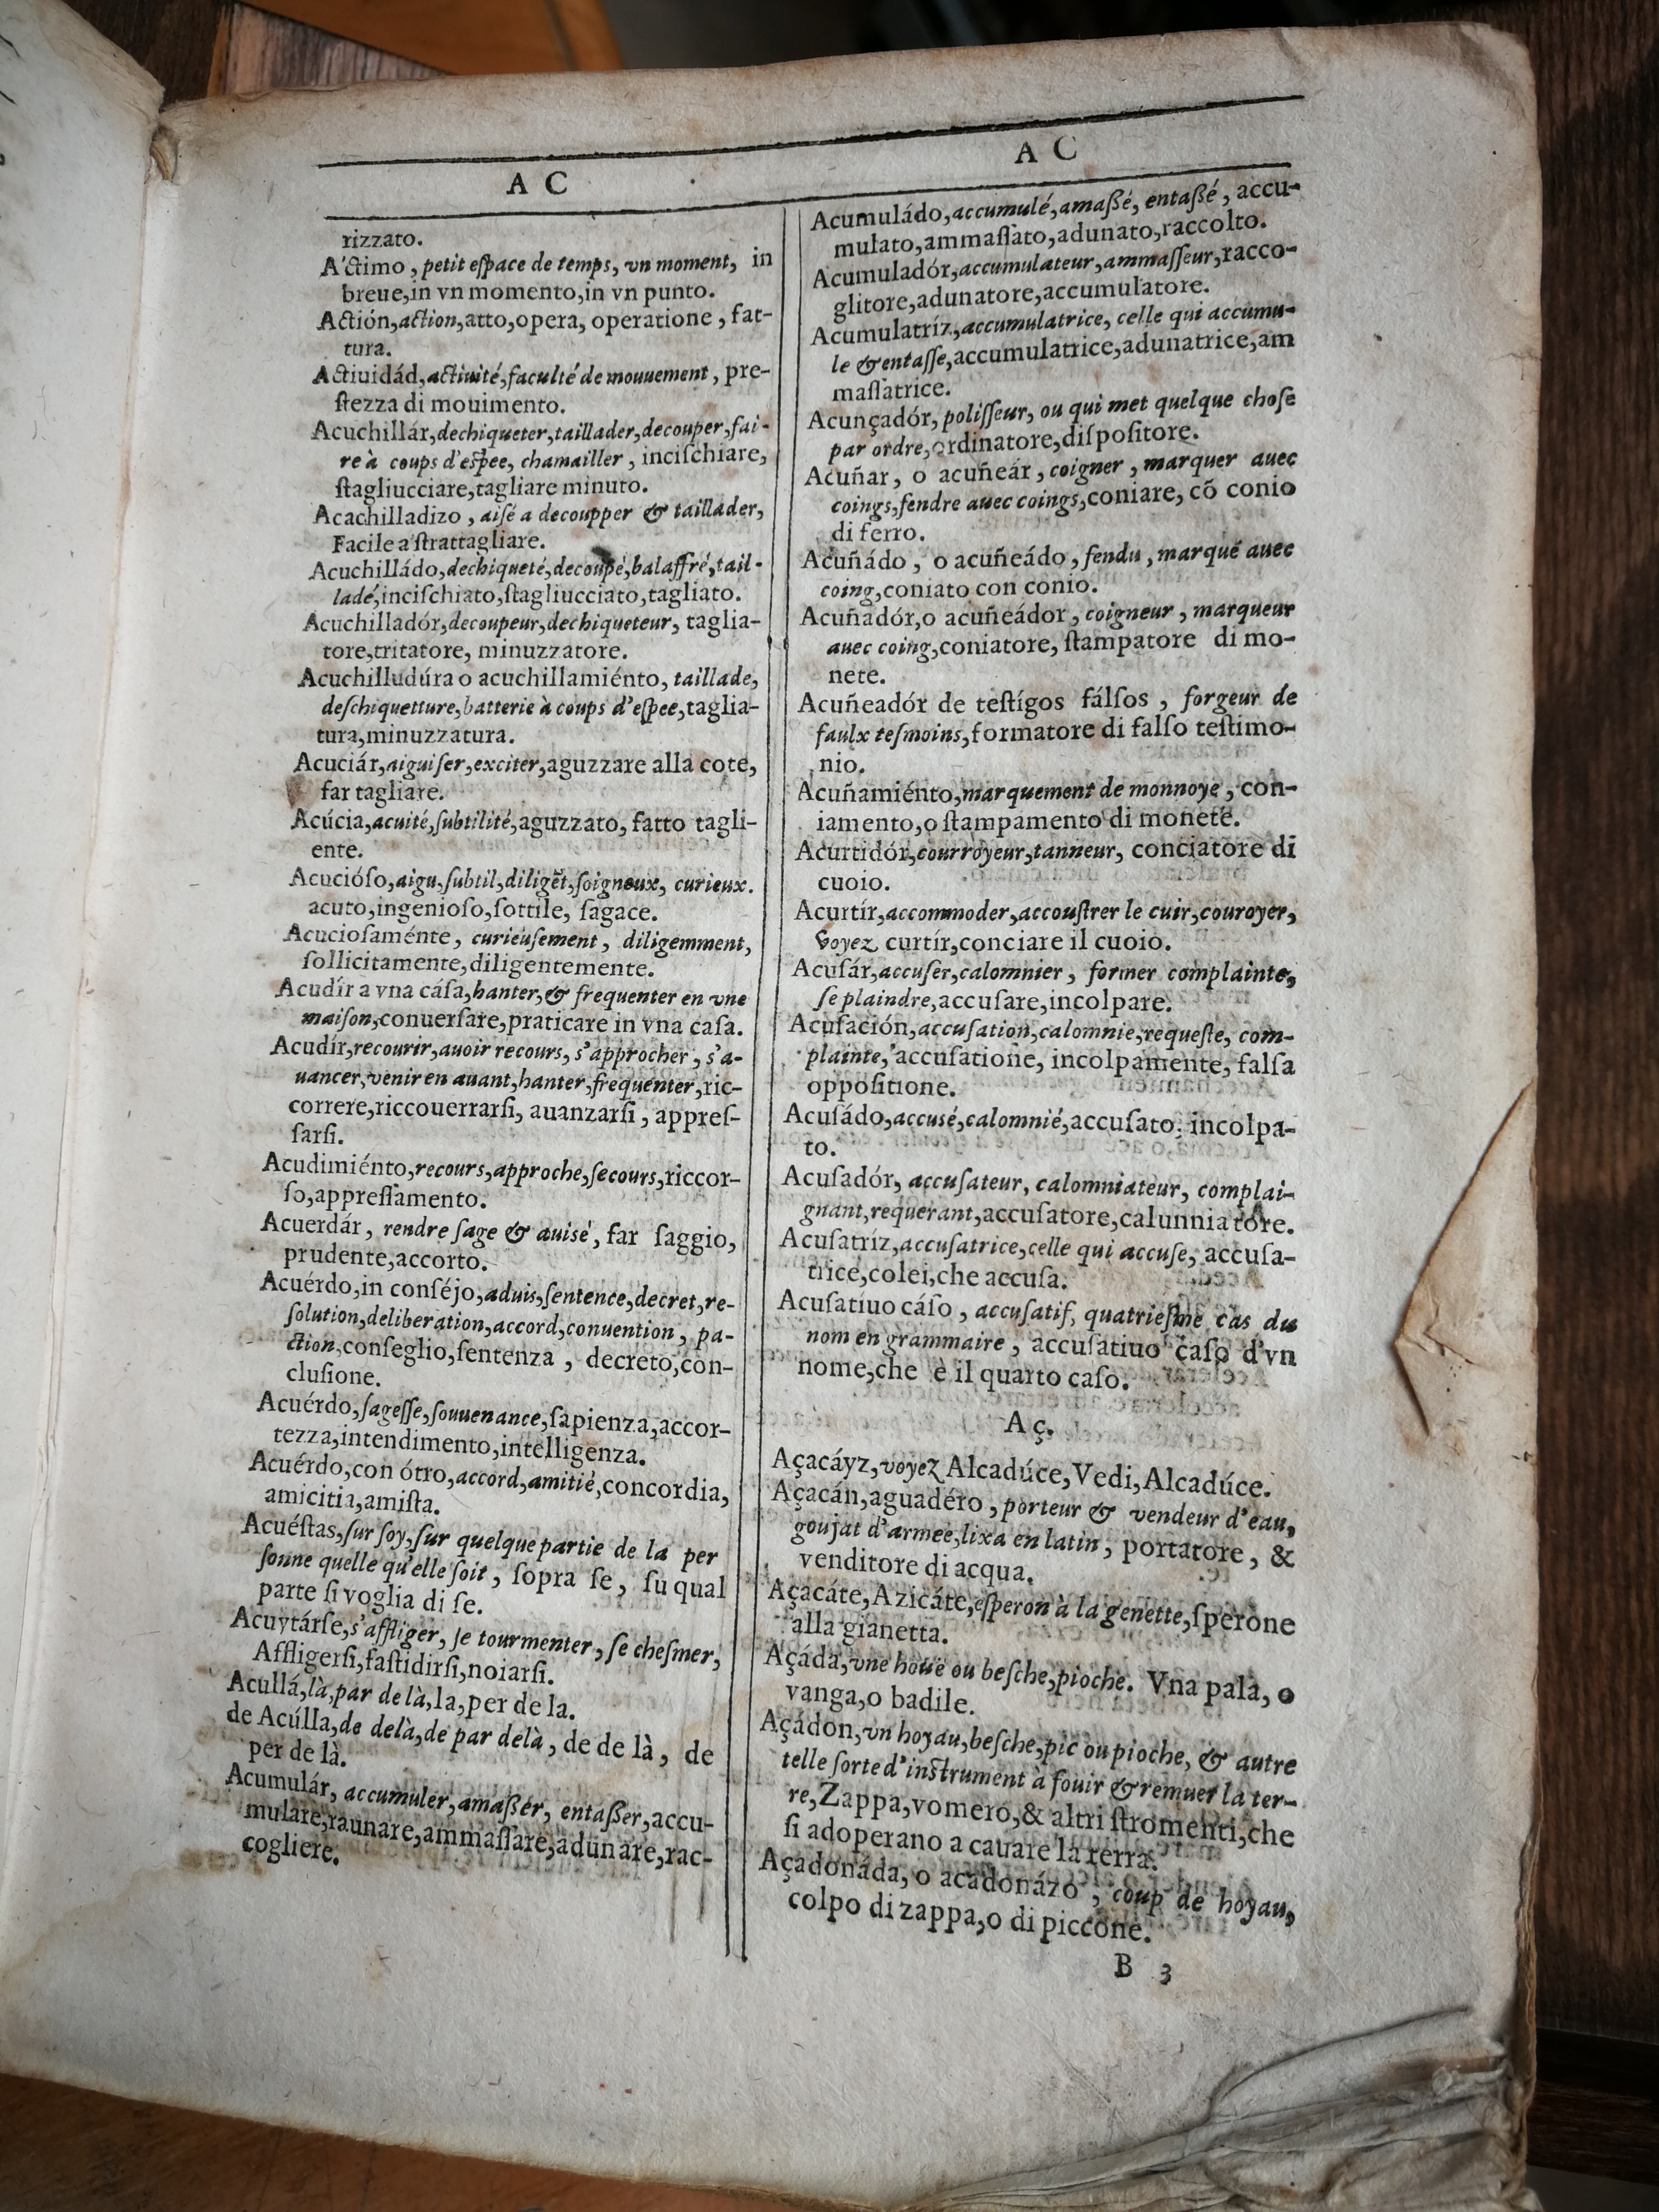 A C
rizzato.
A'ctimo, petit eſpace de temps, vn moment, in
breue,in vn momento,in vn punto.
Actión,action,atto,opera, operatione, fat-
tura.
Actiuidád,actiuité,faculté de mouuement, pre-
ſtezza di mouimento.
Acuchillár,dechiqueter,taillader,decouper,fai-
re à coups d'eſpee, chamailler, inciſchiare,
ſtagliucciare,tagliare minuto.
Acachilladizo, aiſé a decoupper & taillader,
Facile a ſtrattagliare.
Acuchilládo,dechiqueté,decoupé,balaffré,tail-
ladé,inciſchiato,ſtagliucciato,tagliato.
Acuchilladór,decoupeur,dechiqueteur, taglia-
tore,tritatore, minuzzatore.
Acuchilludúra o acuchillamiénto, taillade,
deſchiquetture,batterie à coups d'eſpee,taglia-
tura,minuzzatura.
Acuciár,aiguiſer,exciter,aguzzare alla cote,
far tagliare.
Acúcia,acuité,ſubtilité,aguzzato, fatto tagli-
ente.
Acucióſo,aigu,ſubtil,diligēt,ſoigneux, curieux.
acuto,ingenioſo,ſottile, ſagace.
Acucioſaménte, curieuſement, diligemment,
ſollicitamente,diligentemente.
Acudír a vna cáſa,hanter,& frequenter en vne
maiſon,conuerſare,praticare in vna caſa.
Acudír,recourir,auoir recours, s'approcher, s'a-
uancer,venir en auant,hanter,frequenter,ric-
correre,riccouerrarſi, auanzarſi, appreſ-
ſarſi.
Acudimiénto,recours,approche,ſecours,riccor-
ſo,appreſſamento.
Acuerdár, rendre ſage & auisé, far ſaggio,
prudente,accorto.
Acuérdo,in conſéjo,aduis,ſentence,decret,re-
ſolution,deliberation,accord,conuention, pa-
ction,conſeglio,ſentenza, decreto,con-
cluſione.
Acuérdo,ſageſſe,ſouuenance,ſapienza,accor-
tezza,intendimento,intelligenza.
Acuérdo,con ótro,accord,amitié,concordia,
amicitia,amiſta.
Acuéſtas,ſur ſoy,ſur quelque partie de la per
ſonne quelle qu'elle ſoit, ſopra ſe, ſu qual
parte ſi voglia di ſe.
Acuytárſe,s'affliger, ſe tourmenter, ſe cheſmer,
Affligerſi,faſtidirſi,noiarſi.
Acullá,là,par de là,la,per de la.
de Acúlla,de delà,de par delà, de de là, de
per de là.
Acumulár, accumuler,amaßer, entaßer,accu-
mulare,raunare,ammaſſare,adunare,rac-
cogliere.
A C
Acumuládo,accumulé,amaßé, entaßé, accu-
mulato,ammaſſato,adunato,raccolto.
Acumuladór,accumulateur,ammaſſeur,racco-
glitore,adunatore,accumulatore.
Acumulatríz,accumulatrice, celle qui accumu-
le & entaſſe,accumulatrice,adunatrice,am
maſſatrice.
Acunçadór, poliſſeur, ou qui met quelque choſe
par ordre,ordinatore,diſpoſitore.
Acuñar, o acuñeár, coigner, marquer auec
coings,fendre auec coings,coniare, cõ conio
di ferro.
Acuñádo, o acuñeádo, fendu, marqué auec
coing,coniato con conio.
Acuñadór,o acuñeádor, coigneur, marqueur
auec coing,coniatore, ſtampatore di mo-
nete.
Acuñeadór de teſtígos fálſos, forgeur de
faulx teſmoins,formatore di falſo teſtimo-
nio.
Acuñamiénto,marquement de monnoye, con-
iamento,o ſtampamento di monete.
Acurtidór,courroyeur,tanneur, conciatore di
cuoio.
Acurtír,accommoder,accouſtrer le cuir,couroyer,
voyez curtír,conciare il cuoio.
Acuſár,accuſer,calomnier, former complainte,
ſe plaindre,accuſare,incolpare.
Acuſación,accuſation,calomnie,requeſte, com-
plainte, accuſatione, incolpamente, falſa
oppoſitione.
Acuſádo,accusé,calomnié,accuſato, incolpa-
to.
Acuſadór, accuſateur, calomniateur, complai-
gnant,requerant,accuſatore,calunniatore.
Acuſatríz,accuſatrice,celle qui accuſe, accuſa-
trice,colei,che accuſa.
Acuſatíuo cáſo, accuſatif, quatrieſme cas du
nom en grammaire, accuſatiuo caſo d'vn
nome,che è il quarto caſo.
A ç.
Açacáyz,voyez Alcadúce,Vedi,Alcadúce.
Açacán,aguadéro, porteur & vendeur d'eau,
goujat d'armee,lixa en latin, portatore, &
venditore di acqua.
Açacáte,Azicáte,eſperon à la genette,ſperone
alla gianetta.
Açáda,vne houë ou beſche,pioche. Vna pala, o
vanga,o badile.
Açádon,vn hoyau,beſche,pic ou pioche, & autre
telle ſorte d'inſtrument à fouir & remuer la ter-
re,Zappa,vomero,& altri ſtromenti,che
ſi adoperano a cauare la terra.
Açadonáda, o acadonázo, coup de hoyau,
colpo di zappa,o di piccone.
B 3